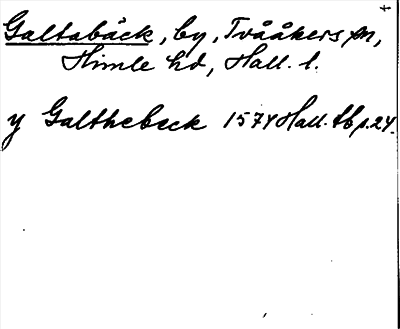 Galtabäck, by, Tvååkers sn,
Himle hd, Hall. l.
y Galthebeck 1574 Hall. tb s. 24.